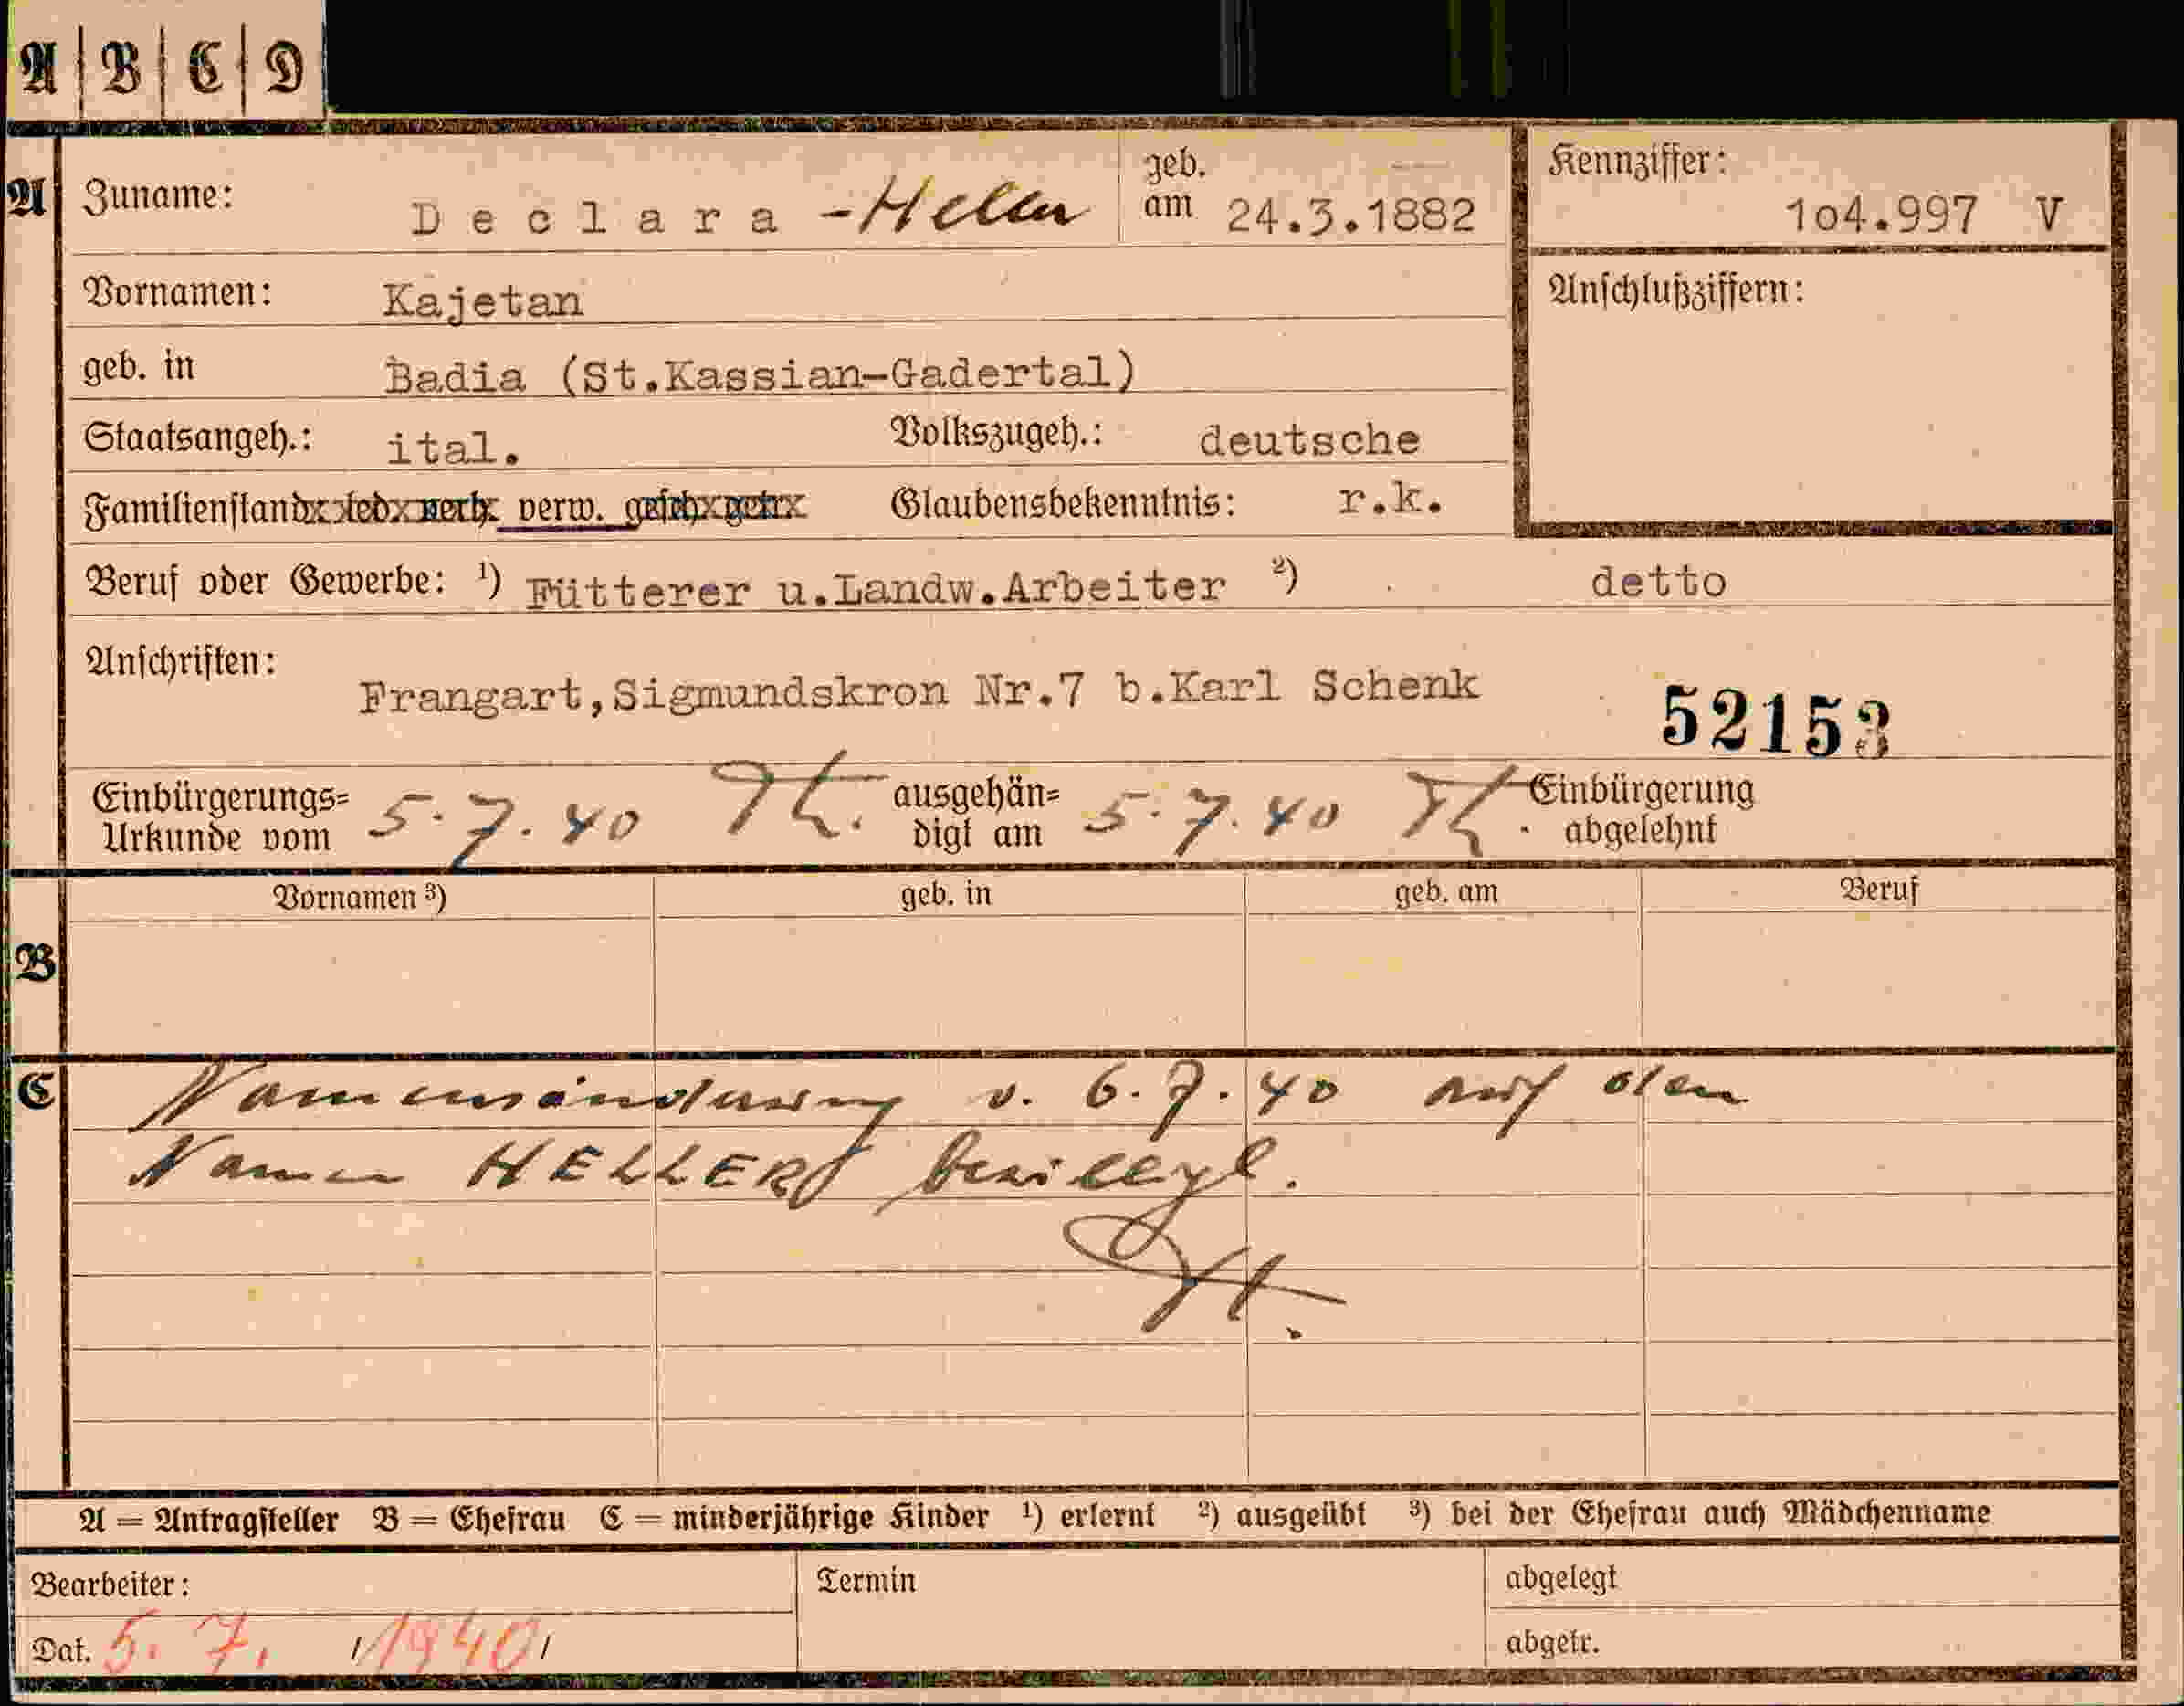 A | B | C | D
A
Zuname: Declara - Heller
geb. am 24.3.1882
Kennziffer: 1o4.997 V
Vornamen: Kajetan
Anschlußziffern:
geb. in Badia (St.Kassian-Gadertal)
Staatsangeh.: ital. Volkszugeh.: deutsche
Familienstand led. verh. verw. gesch. getr. Glaubensbekenntnis: r.k.
Beruf oder Gewerbe: ¹) Fütterer u.Landw.Arbeiter ²) detto
Anschriften:
Frangart,Sigmundskron Nr.7 b.Karl Schenk
52153
Einbürgerungs=Urkunde vom 5.7.40 ausgehän=digt am 5.7.40 Einbürgerung abgelehnt
Vornamen ³) geb. in geb. am Beruf
B
C
Namensänderung v. 6.7.40 auf den
Namen HELLER bewilligt.
A = Antragsteller B = Ehefrau C = minderjährige Kinder ¹) erlernt ²) ausgeübt ³) bei der Ehefrau auch Mädchenname
Bearbeiter: Termin abgelegt
Dat. 5. 7. /1940/ abgetr.